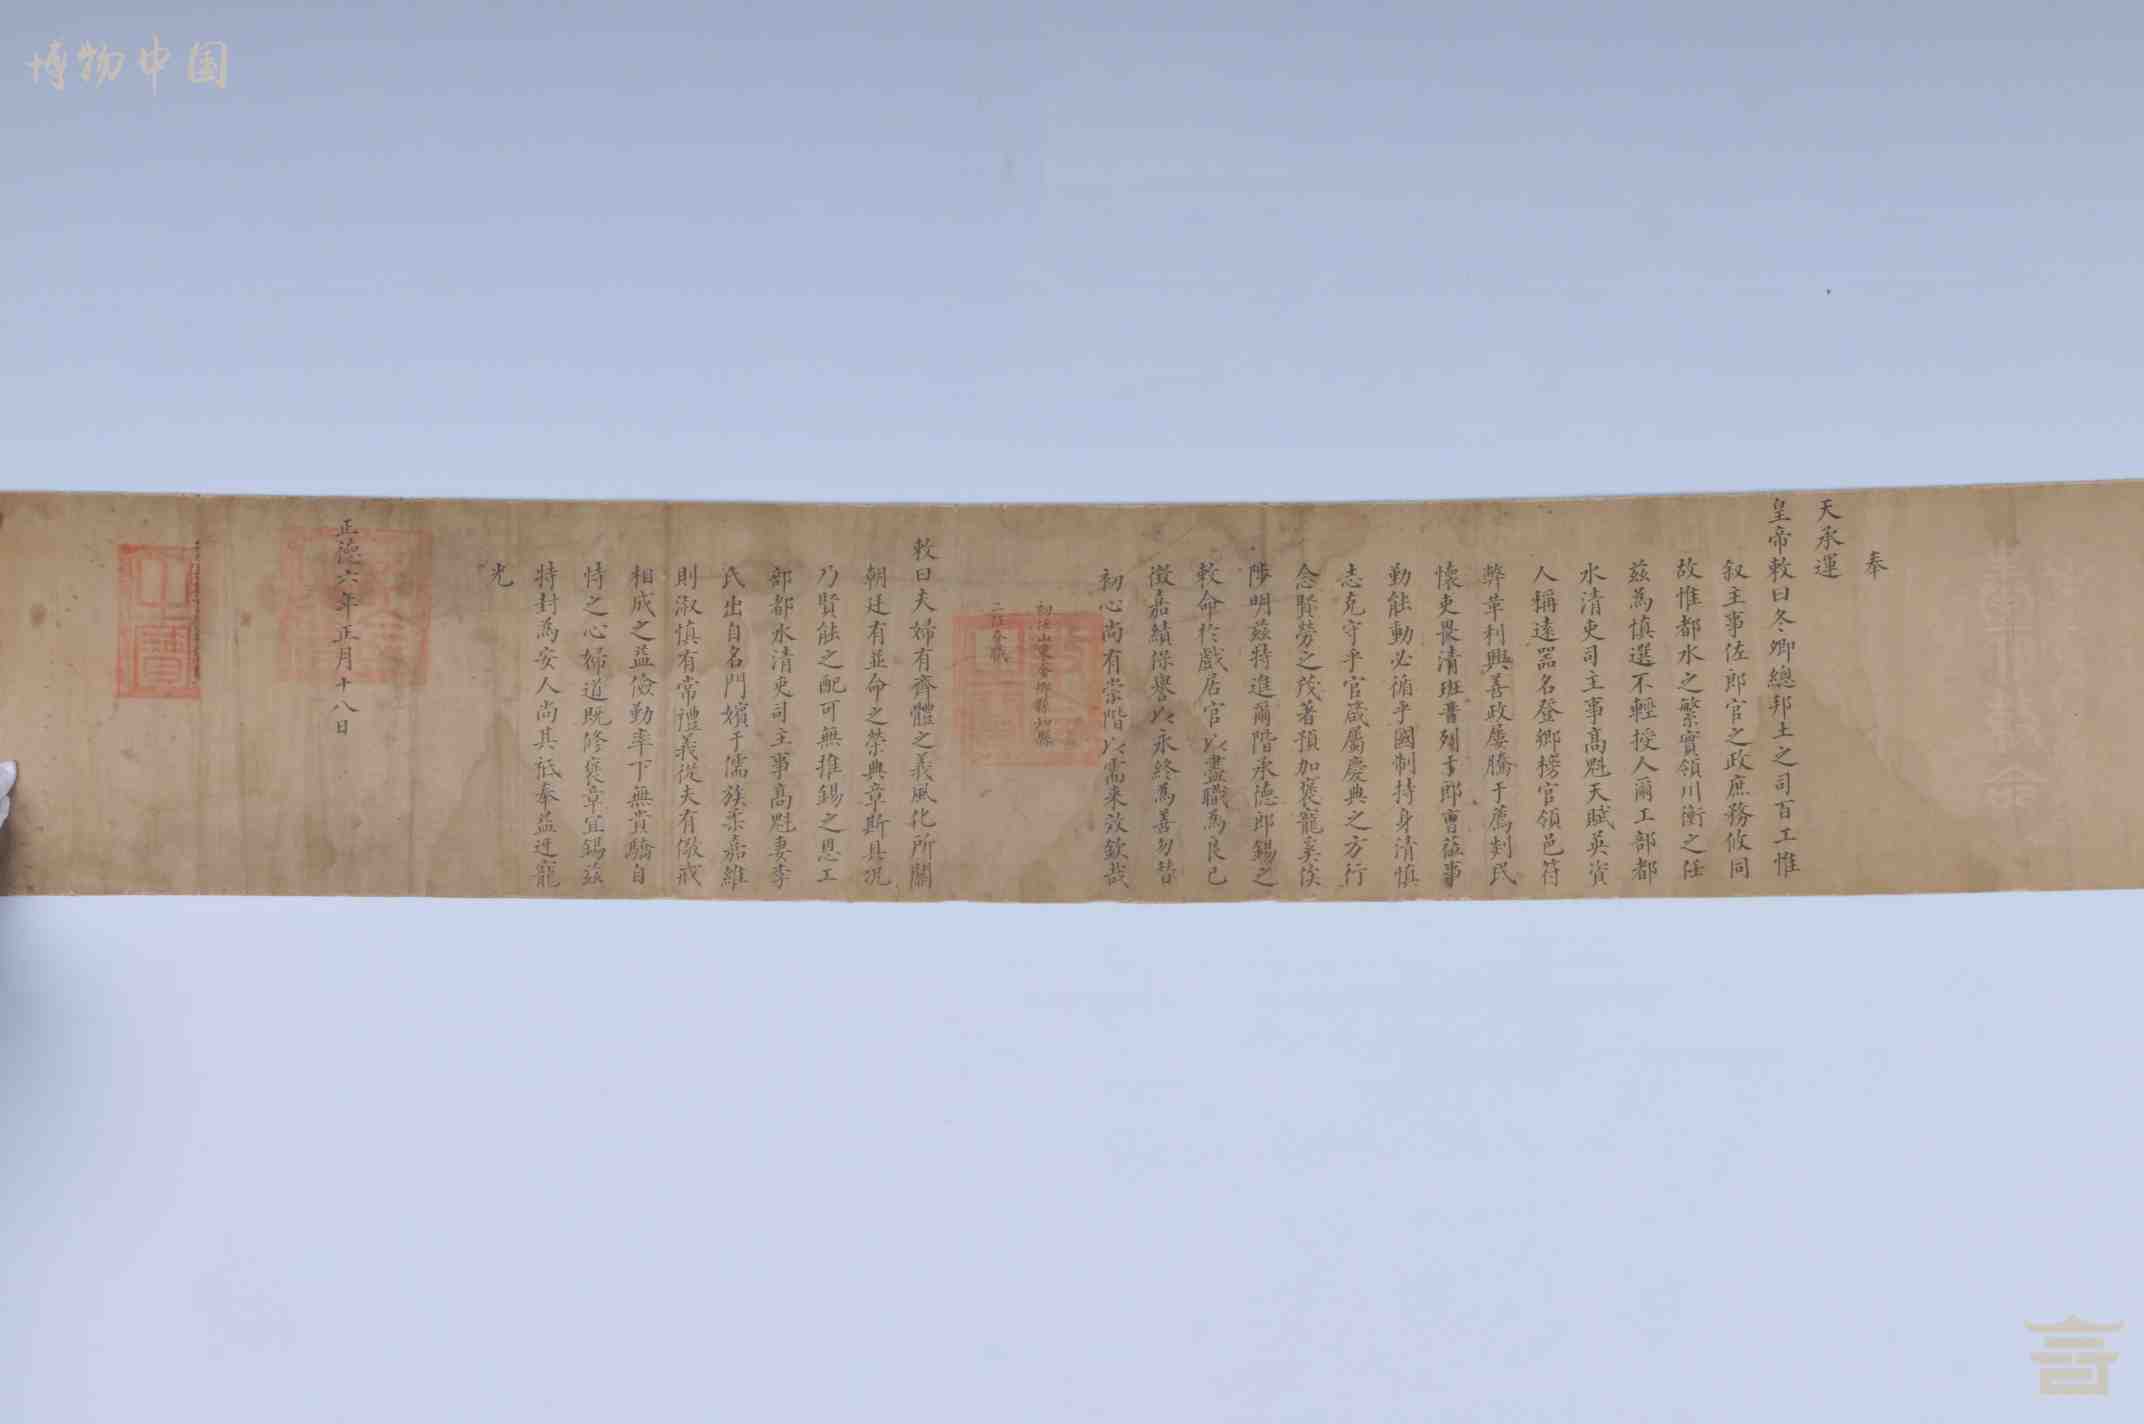 博物中国
奉
天承運
皇帝敕曰冬卿總邦土之司百工惟
叙主事佐郎官之政庶務攸同
故惟都水之繁實領川衡之任
兹為慎選不輕授人爾工部都
水清吏司主事高魁天賦英資
人稱遠器名登鄉榜官領邑符
弊革利興善政屢騰于薦剡民
懷吏畏清班晋列于郎曹蒞事
勤能動必循乎國制持身清慎
志克守乎官箴屬慶典之方行
念賢勞之茂著預加褒寵奚俟
陟明兹特進爾階承德郎錫之
敕命於戲居官以盡職為良已
徵嘉績保譽以永終為善勿替
初心尚有崇階以需来效欽哉
初任山東金鄉縣知縣
二任今職
敕曰夫婦有齊體之義風化所關
朝廷有並命之榮典章斯具况
乃賢能之配可無推錫之恩工
部都水清吏司主事高魁妻李
氏出自名門嬪于儒族柔嘉維
則淑慎有常禮義從夫有儆戒
相成之益儉勤率下無貴驕自
恃之心婦道既修褒章宜錫兹
特封為安人尚其祗奉益迓寵
光
正德六年正月十八日
之寶